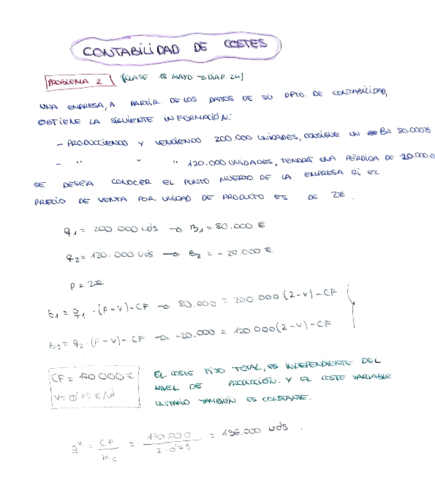 CONTABILIDAD DE COSTES
PROBLEMA 2 (CLASE MAYO DIAP. 24)
UNA EMPRESA, A PARTIR DE LOS DATOS DE SU DPTO DE CONTABILIDAD,
OBTIENE LA SIGUIENTE INFORMACIÓN:
- PRODUCIENDO Y VENDIENDO 200.000 UNIDADES, CONSIGUE UN B=
- " " " 120.000 UNIDADES, TENDRÁ UNA PÉRDIDA DE 20.000
SE DESEA CONOCER EL PUNTO MUERTO DE LA EMPRESA SI EL
PRECIO DE VENTA POR UNIDAD DE PRODUCTO ES DE 2€.
q1 = 200.000 uds → B1 = 80.000 €
q2 = 120.000 uds → B2 = -20.000 €
P = 2€
b1 = q1 · (P-V) - CF → 80.000 = 200.000(2-V) - CF
b2 = q2 · (P-V) - CF → -20.000 = 120.000(2-V) - CF
CF = 170.000€
V = 0'75 €/ud
EL COSTE FIJO TOTAL, ES INDEPENDIENTE DEL
NIVEL DE PRODUCCIÓN. Y EL COSTE VARIABLE
UNITARIO TAMBIÉN ES CONSTANTE.
q* = CF / mc = 170.000 / 2-0'75 = 136.000 uds.